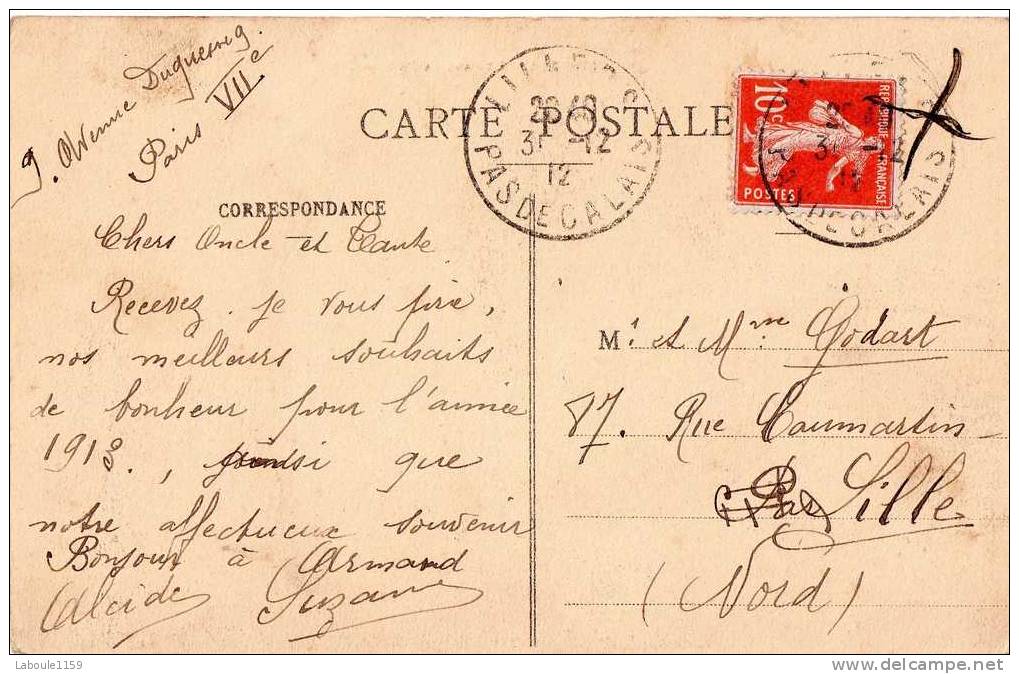 9. Avenue Duquesne 9.
Paris VIIe
CARTE POSTALE
LILLE
31 - 12
12
PAS DE CALAIS
REPUBLIQUE FRANÇAISE
10c
POSTES
31 - 12
12
CORRESPONDANCE
Chers Oncle et Tante
Recevez. je vous prie,
nos meilleurs souhaits
de bonheur pour l'année
1913., ainsi que
notre affectueux souvenir
Bonjour à Armand
Alcide Suzanne
Mr. et Mme. Godart
87. Rue Caumartin -
Lille
(Nord)
Laboule1159
delcampe.net